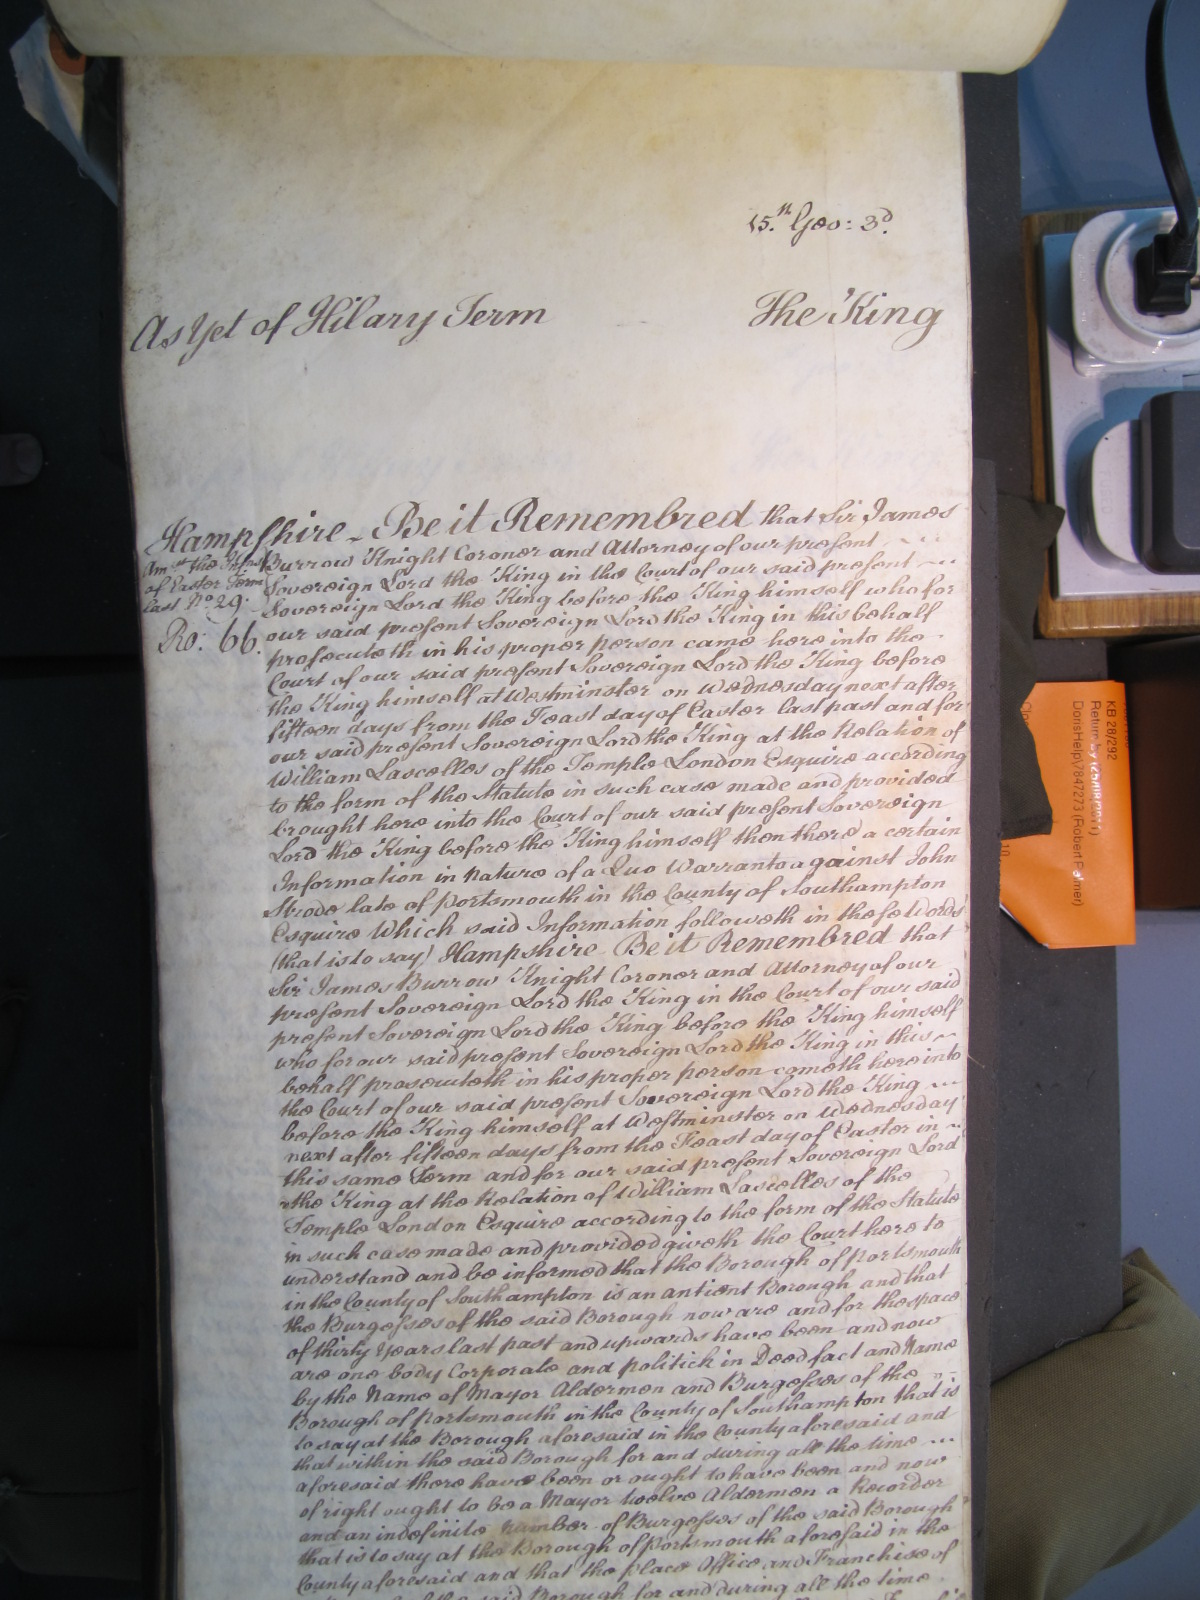 15.th Geo: 3d.
As Yet of Hilary Term The King
Hampshire - Be it Remembred that Sir James
Burrow Knight Coroner and Attorney of our present
Sovereign Lord the King in the Court of our said present
Sovereign Lord the King before the King himself who for
our said present Sovereign Lord the King in this behalf
prosecuteth in his proper person came here into the
Court of our said present Sovereign Lord the King before
the King himself at Westminster on Wednesday next after
fifteen days from the Feast day of Easter last past and for
our said present Sovereign Lord the King at the Relation of
William Lascelles of the Temple London Esquire according
to the form of the Statute in such case made and provided
brought here into the Court of our said present Sovereign
Lord the King before the King himself then there a certain
Information in nature of a Quo Warranto against John
Strode late of Portsmouth in the County of Southampton
Esquire Which said Information followeth in these Words
(that is to say) Hampshire Be it Remembred that
Sir James Burrow Knight Coroner and Attorney of our
present Sovereign Lord the King in the Court of our said
present Sovereign Lord the King before the King himself
who for our said present Sovereign Lord the King in this
behalf prosecuteth in his proper person cometh here into
the Court of our said present Sovereign Lord the King
before the King himself at Westminster on Wednesday
next after fifteen days from the Feast day of Easter in
this same Term and for our said present Sovereign Lord
the King at the Relation of William Lascelles of the
Temple London Esquire according to the form of the Statute
in such case made and provided giveth the Court here to
understand and be informed that the Borough of Portsmouth
in the County of Southampton is an antient Borough and that
the Burgesses of the said Borough now are and for the space
of thirty Years last past and upwards have been and now
are one body Corporate and politick in Deed fact and Name
by the Name of Mayor Aldermen and Burgesses of the
Borough of Portsmouth in the County of Southampton that is
to say at the Borough aforesaid in the County aforesaid and
that within the said Borough for and during all the time
aforesaid there have been or ought to have been and now
of right ought to be a Mayor twelve Aldermen a Recorder
and an indefinite number of Burgesses of the said Borough
that is to say at the Borough of Portsmouth aforesaid in the
County aforesaid and that the place Office and Franchise of
the said Borough for and during all the time
Am.st the
of Easter Term
last No. 29.
Ro: 66.
KB 28/292
Return by (25/08/2011)
DorisHelp\7847273 (Robert Palmer)